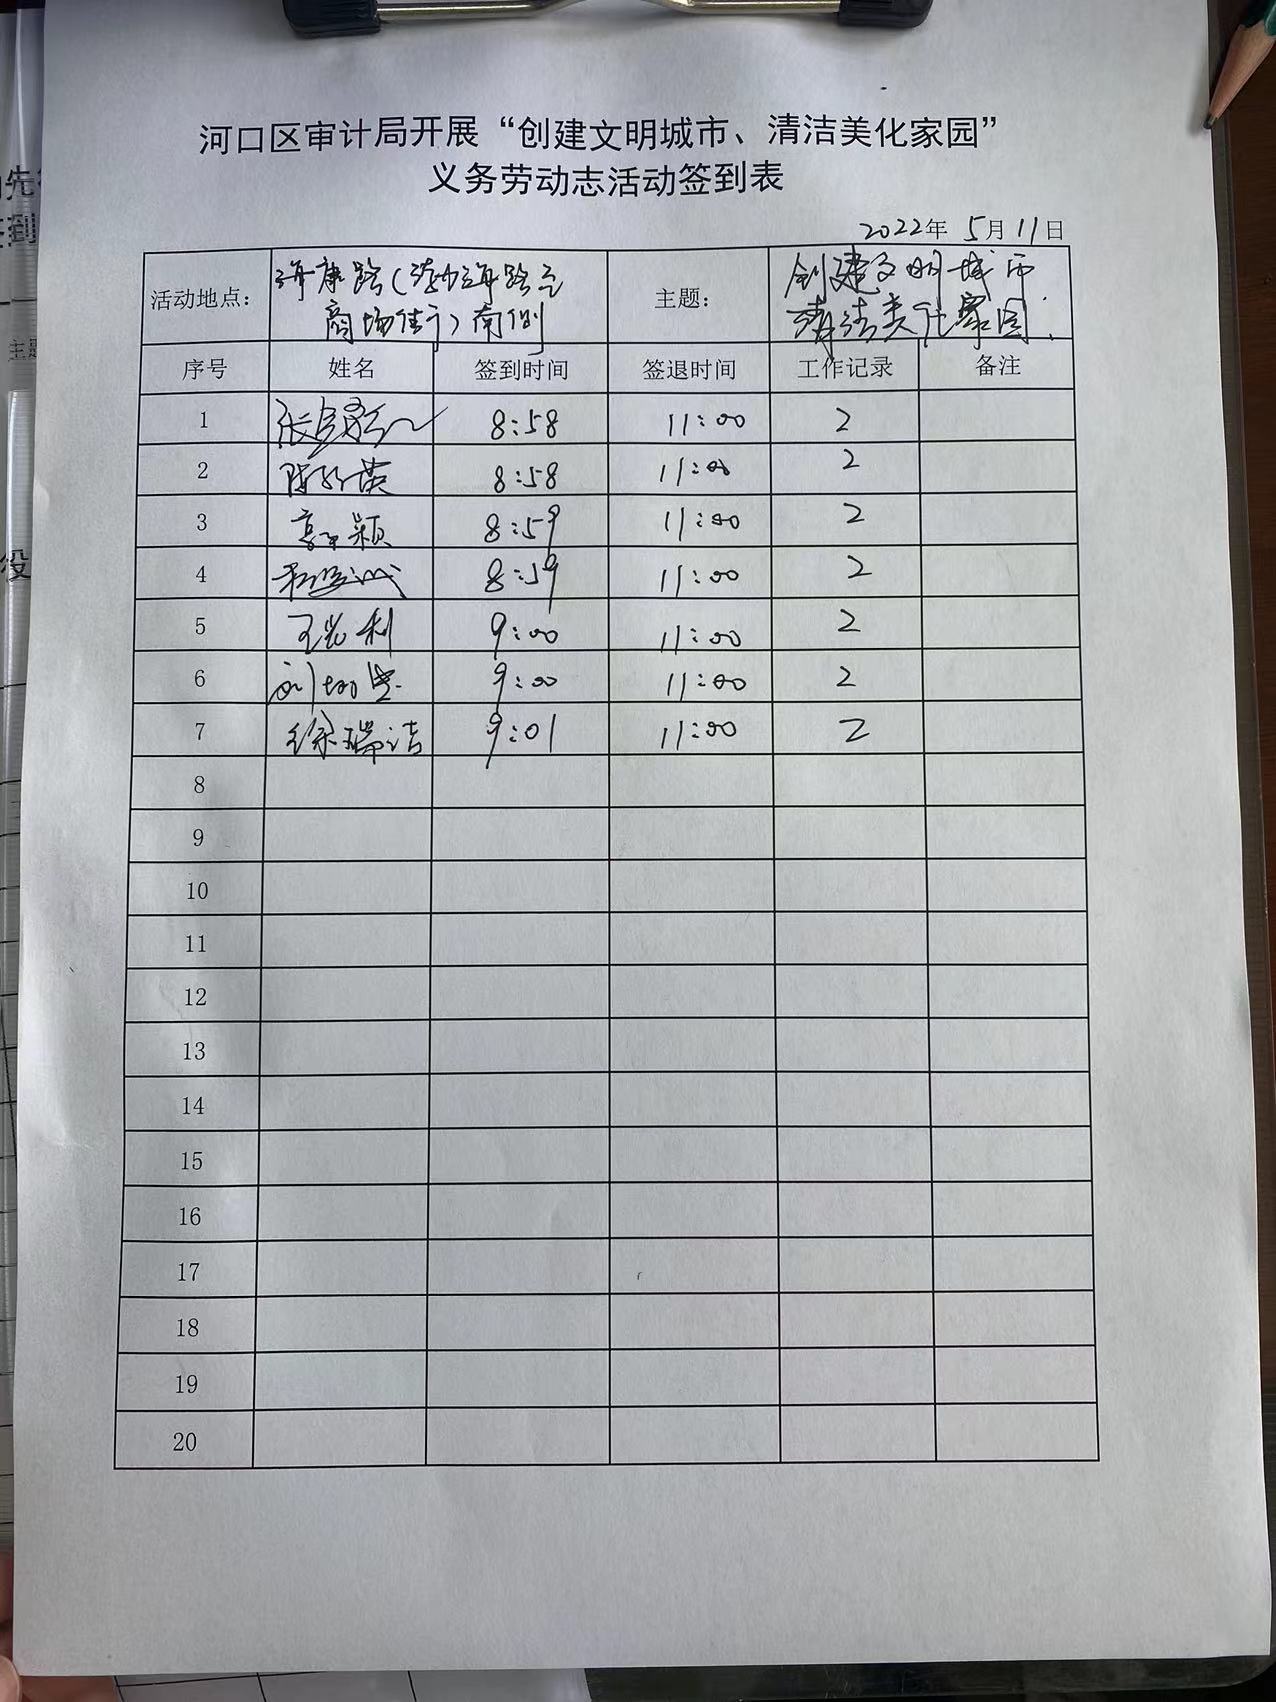 河口区审计局开展“创建文明城市、清洁美化家园”
义务劳动志活动签到表
2022年 5月11日
活动地点： 海康路(渤海路至 主题： 创建文明城市
商场街)南侧 清洁美化家园.
序号 姓名 签到时间 签退时间 工作记录 备注
1 8:58 11:00 2
2 8:58 11:00 2
3 8:59 11:00 2
4 8:59 11:00 2
5 9:00 11:00 2
6 9:00 11:00 2
7 徐瑞洁 9:01 11:00 2
8
9
10
11
12
13
14
15
16
17
18
19
20